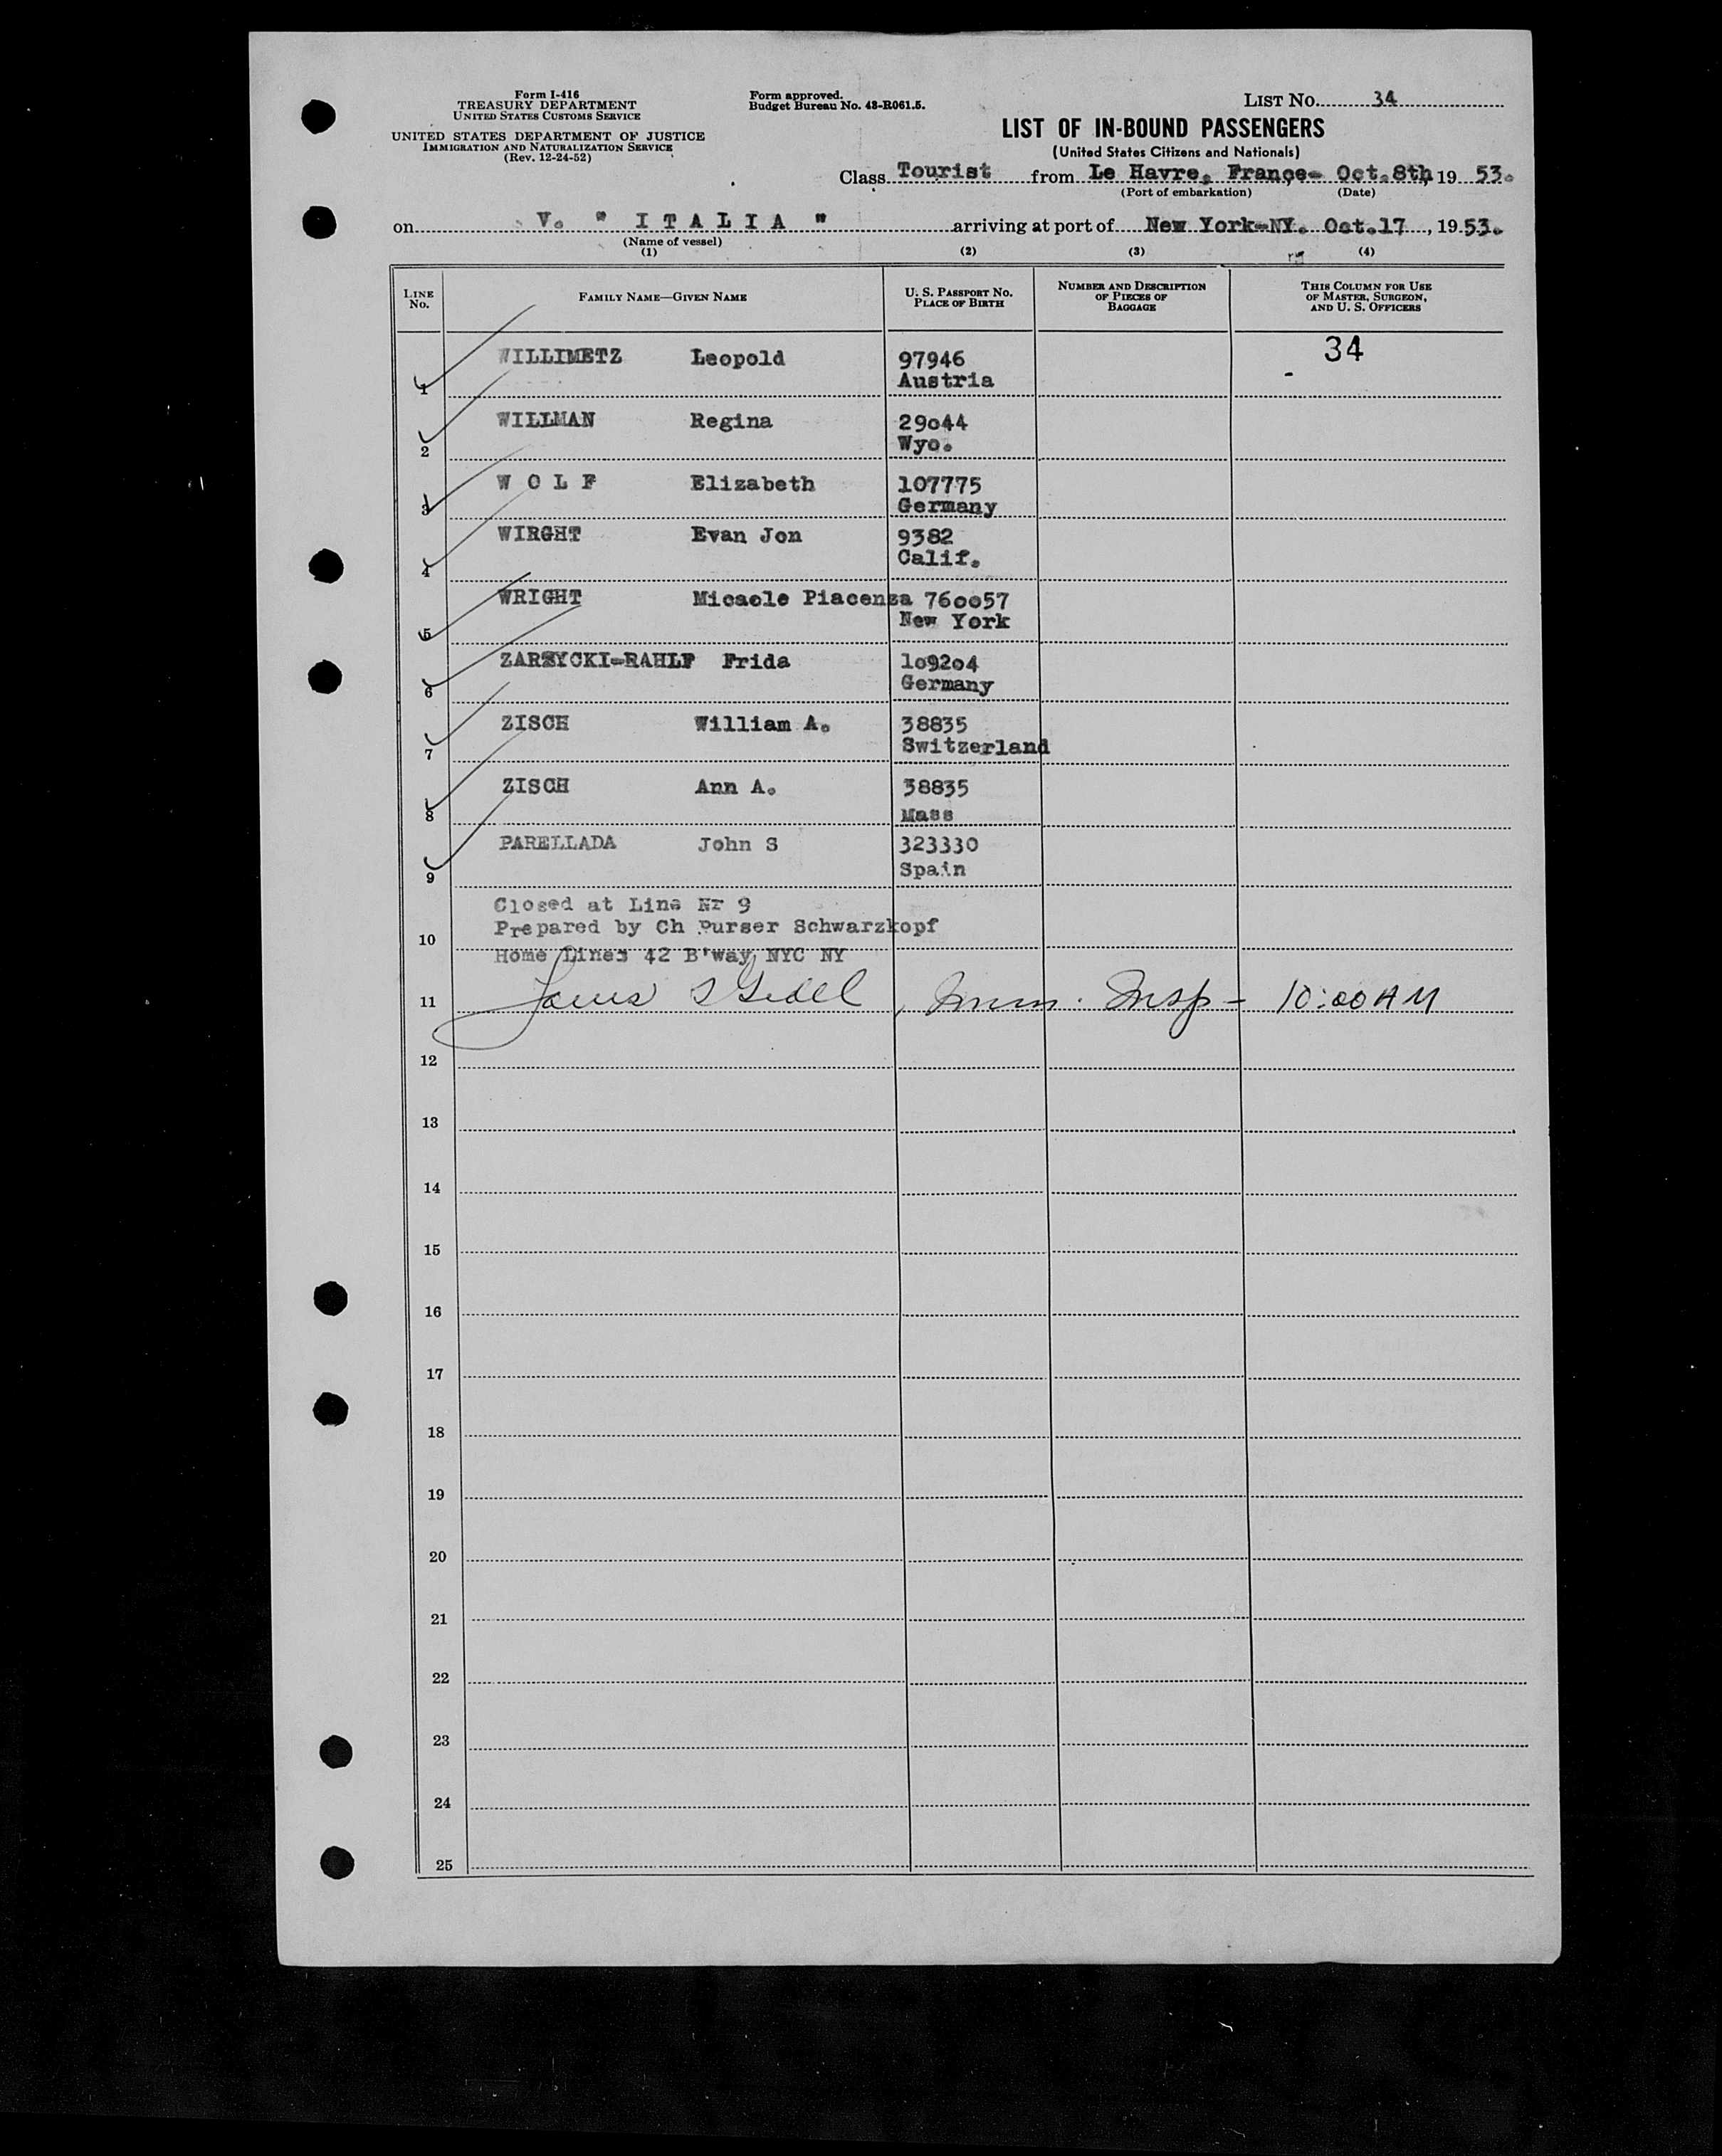 Form I-416
TREASURY DEPARTMENT
UNITED STATES CUSTOMS SERVICE
UNITED STATES DEPARTMENT OF JUSTICE
IMMIGRATION AND NATURALIZATION SERVICE
(Rev. 12-24-52)
Form approved.
Budget Bureau No. 43-R061.5.
LIST No. 34
LIST OF IN-BOUND PASSENGERS
(United States Citizens and Nationals)
Class Tourist from Le Havre, France- Oct.8th, 19 53.
(Port of embarkation) (Date)
on V. " I T A L I A " arriving at port of New York-NY. Oct.17, 19 53.
(Name of vessel)
(1) (2) (3) (4)
LINE No. FAMILY NAME—GIVEN NAME U. S. PASSPORT NO. PLACE OF BIRTH NUMBER AND DESCRIPTION OF PIECES OF BAGGAGE THIS COLUMN FOR USE OF MASTER, SURGEON, AND U. S. OFFICERS
34
1 WILLIMETZ Leopold 97946
Austria
2 WILLMAN Regina 29o44
Wyo.
3 W O L F Elizabeth 107775
Germany
4 WIRGHT Evan Jon 9382
Calif.
5 WRIGHT Micaole Piacenza 76oo57
New York
6 ZARZYCKI-RAHLF Frida 1o92o4
Germany
7 ZISCH William A. 38835
Switzerland
8 ZISCH Ann A. 38835
Mass
9 PARELLADA John S 323330
Spain
Closed at Line Nr 9
10 Prepared by Ch Purser Schwarzkopf
Home Lines 42 B'way NYC NY
11 Imm. Insp - 10:00 AM
12
13
14
15
16
17
18
19
20
21
22
23
24
25